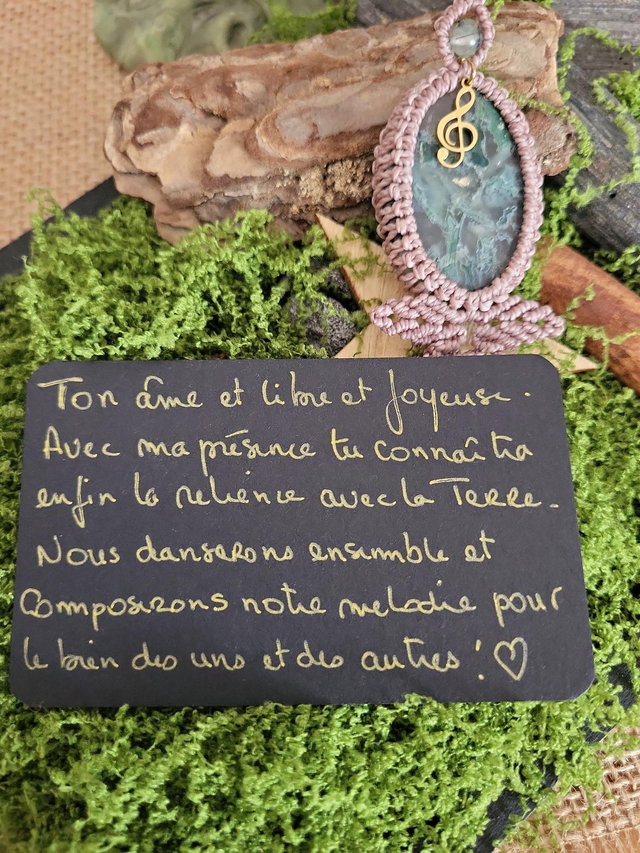 Ton âme et libre et Joyeuse.
Avec ma présence tu connaîtra
enfin la relience avec la Terre.
Nous danserons ensemble et
Composerons notre melodie pour
le bien des uns et des autres ! ♡